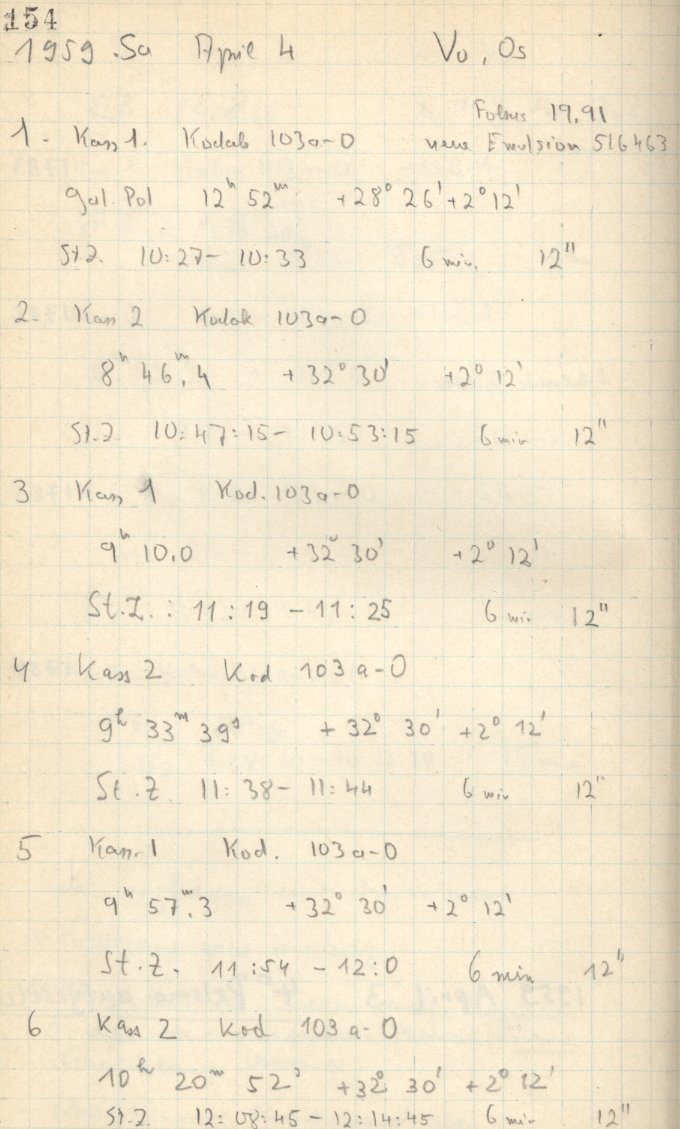 154
1959 Sa April 4 Vo, Os
Fokus 19.91
1. Kass 1. Kodak 103a-O neue Emulsion 516463
gal. Pol 12h 52m +28° 26' +2° 12'
St.Z. 10:27 - 10:33 6 min. 12"
2. Kass 2 Kodak 103a-O
8h 46m,4 +32° 30' +2° 12'
St.Z. 10:47:15 - 10:53:15 6 min 12"
3 Kass 1 Kod. 103a-O
9h 10.0 +32° 30' +2° 12'
St.Z.: 11:19 - 11:25 6 min 12"
4 Kass 2 Kod 103 a-O
9h 33m 39s +32° 30' +2° 12'
St.Z. 11:38 - 11:44 6 min 12"
5 Kass. 1 Kod. 103a-O
9h 57m,3 +32° 30' +2° 12'
St.Z. 11:54 - 12:0 6 min 12"
6 Kass 2 Kod 103 a-O
10h 20m 52s +32° 30' +2° 12'
St.Z. 12:08:45 - 12:14:45 6 min 12"